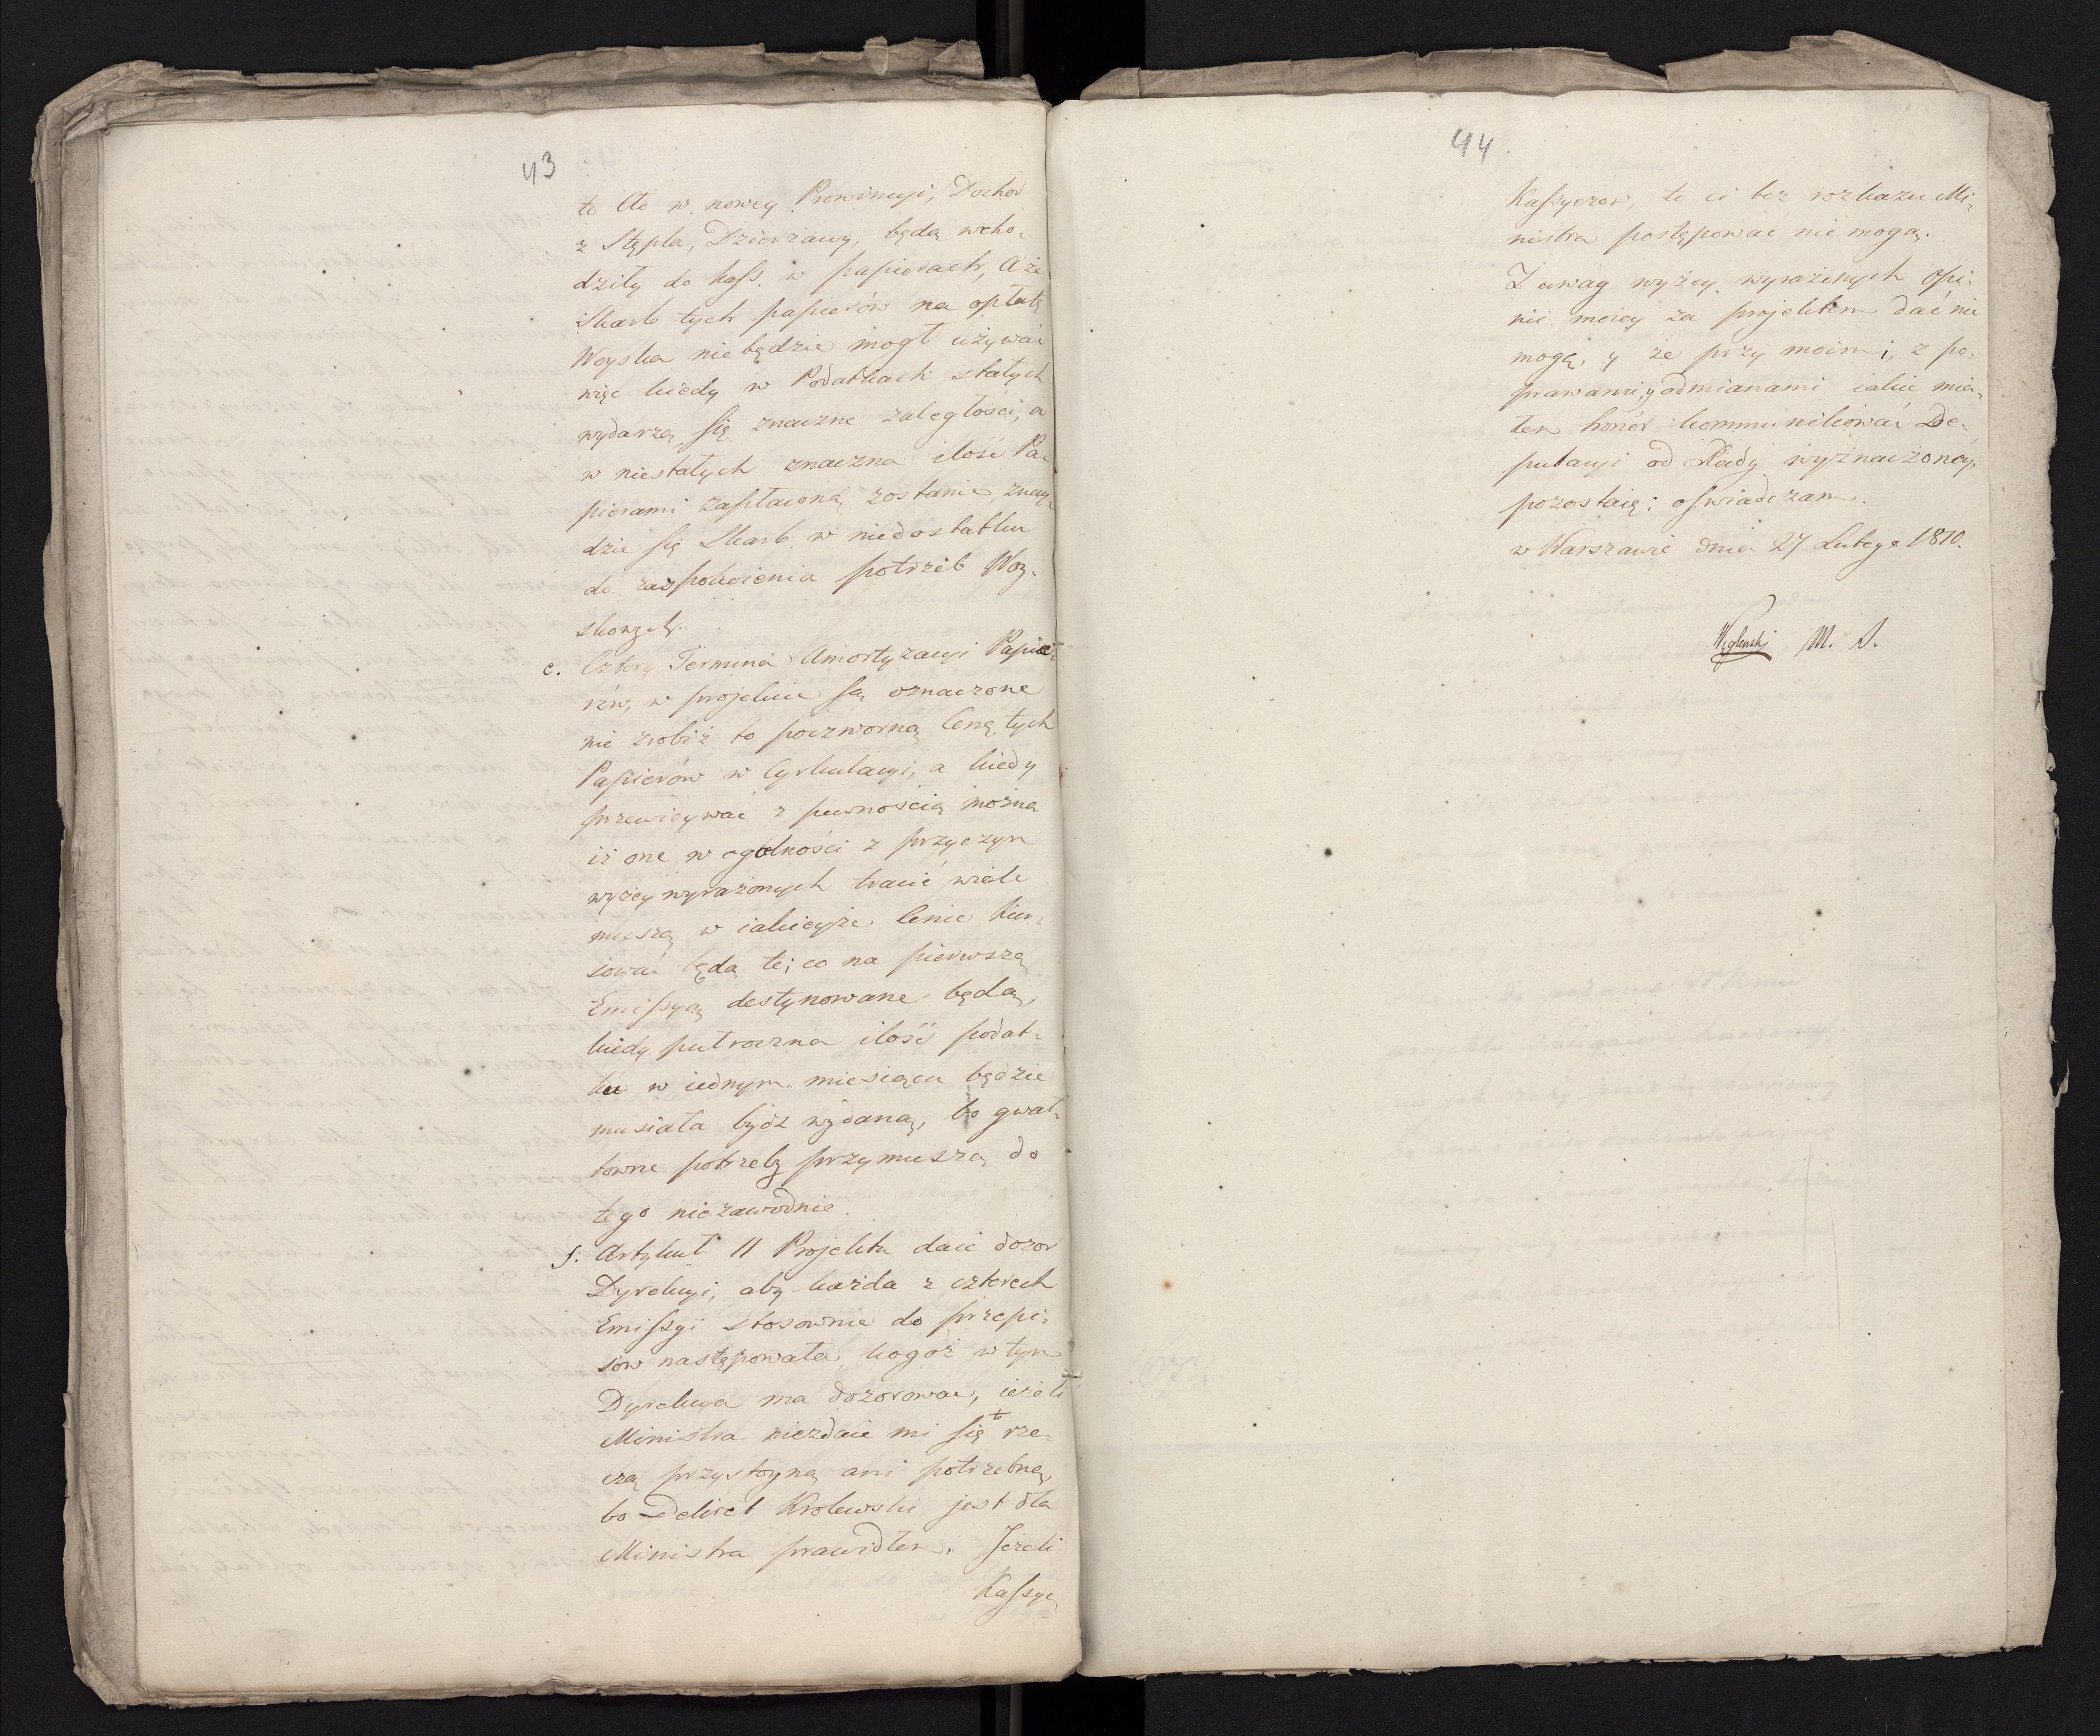 43
to Cło w nowey Prowincyi, Dochod
z Stępla, Dzierżawy, będą wcho-
dziły do kass. w papierach, A że
Skarb tych papierów na opłatę
Woyska niebędzie mogł używać
więc kiedy w Podatkach stałych
wydarzą się znaczne zaległości, a
w niestałych znaczna ilość Pa-
pierami zapłaconą zostanie, znay-
dzie się Skarb w niedostatku
do zaspokoienia potrzeb Woy-
skowych.
e. Cztery Termina Amortyzacyi Papie-
rów, w projekcie są oznaczone
nie zrobiż to poczworną Cenę tych
Papierów w Cyrkulacyi, a kiedy
przewidywać z pewnością można
iż one w ogolności z przyczyn
wyżey wyrażonych tracić wiele
muszą w iakieyże Cenie kur-
sować będą te; co na pierwszą
Emissyą destynowane będą,
kiedy putroczna ilość podat-
ku w iednym miesiącu będzie
musiała bydź wydaną, bo gwał-
towne potrzeby przymuszą do
tego niezawodnie.
f. Artykuł 11 Projektu daie dozor
Dyrekcyi, aby każda z czterech
Emissyi stosownie do przepi-
sow następowała, kogoż w tym
Dyrekcya ma dozorować, ieżeli
Ministra niezdaie mi się to rze-
czą przystoyną ani potrzebną,
bo Dekret Krolewski jest dla
Ministra prawidłem. Jeżeli
Kassye-
44
Kassyerow, to ci bez rozkazu Mi-
nistra postępować nie mogą.
Z uwag wyżey wyrażonych Opi-
nii moiey za projektem dać nie
mogę, y że przy moim; z po-
prawami, y odmianami iakie mia-
łem honór kommunikować De-
putacyi od Rady wyznaczoney,
pozostaię; oswiadczam.
w Warszawie dnia 27 Lutego 1810.
Węgleński M. S.